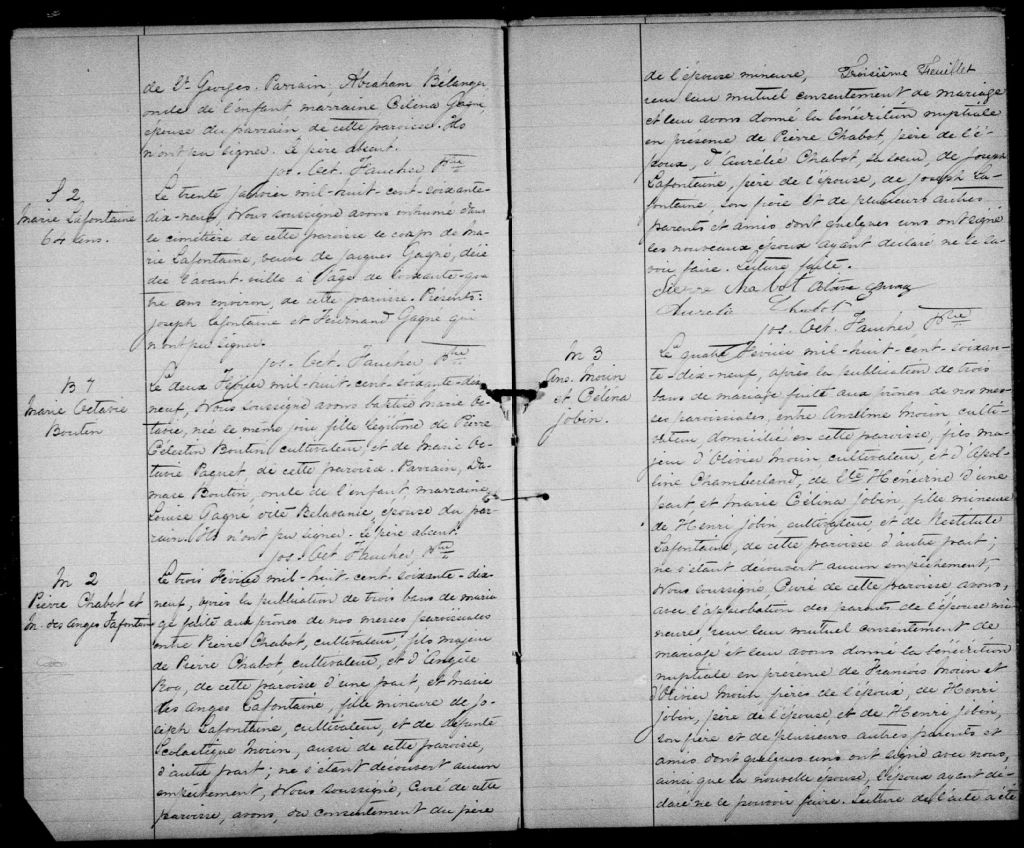 de St Georges. Parrain, Abraham Bélanger
oncle de l'enfant marraine Célena Gagné,
épouse du parrain de cette paroisse. Ils
n'ont pu signer. Le père absent.
Jos. Oct. Faucher Ptre
S 2.
Marie Lafontaine
64 ans.
Le trente janvier mil-huit-cent-soixante-
dix-neuf, Nous soussigné avons inhumé dans
le cimétière de cette paroisse le corps de Ma-
rie Lafontaine, veuve de Jacques Gagné, décé
dée l'avant-veille à l'âge de soixante-qua
tre ans environ, de cette paroisse. Présents:
Joseph Lafontaine et Ferdinand Gagné qui
n'ont pu signer.
Jos. Oct. Faucher Ptre
B 7
Marie Octavie
Boutin
Le deux Février mil-huit-cent-soixante-dix-
neuf, Nous soussigné avons baptisé Marie Oc-
tavie, née le même jour fille légitime de Pierre
Célestin Boutin cultivateur, et de Marie Oc
tavie Paquet de cette paroisse. Parrain, Da-
mase Boutin, oncle de l'enfant, marraine,
Louise Gagné dite Belavanie, épouse du par-
rain. Ils n'ont pu signer. Le père absent.
Jos. Oct Faucher Ptre
M 2
Pierre Chabot et
M. des Anges Lafontaine
Le trois Février mil-huit-cent-soixante-dix-
neuf, après la publication de trois bans de maria
ge faite aux prônes de nos messes paroissiales
entre Pierre Chabot, cultivateur, fils majeur
de Pierre Chabot cultivateur, et d'Angèle
Roy, de cette paroisse d'une part, et Marie
des Anges Lafontaine, fille mineure de Jo-
seph Lafontaine, cultivateur, et de défunte
Scolastique Morin, aussi de cette paroisse,
d'autre part; ne s'étant découvert aucun
empêchement, Nous soussigné, Curé de cette
paroisse, avons, du consentement du père
de l'épouse mineure, Troisième Feuillet
reçu leur mutuel consentement de mariage
et leur avons donné la bénédiction nuptiale
en présence de Pierre Chabot, père de l'é-
poux, d'Aurélie Chabot, sa soeur, de Joseph
Lafontaine, père de l'épouse, de Joseph La-
fontaine son père et de plusieurs autres
parents et amis dont quelques uns ont signé
les nouveaux époux ayant déclaré ne le sa-
voir faire. Lecture faite.
Pierre Chabot
Aurelie Chabot
Jos. Oct. Faucher Ptre
M 3
Ans. Morin
et Célina
Jobin.
Le quatre Février mil-huit-cent-soixan-
te-dix-neuf, après la publication de trois
bans de mariage faite aux prônes de nos mes-
ses paroissiales, entre Anselme Morin culti-
vateur domicilié en cette paroisse, fils ma-
jeur d'Olivier Morin cultivateur, et d'Apol-
line Chamberland, de Ste Hénédine d'une
part, et Marie Célina Jobin, fille mineure
de Henri Jobin cultivateur et de Restitute
Lafontaine, de cette paroisse d'autre part;
ne s'étant découvert aucun empêchement,
Nous soussigné, Curé de cette paroisse avons,
avec l'approbation des parents de l'épouse mi-
neure, reçu leur mutuel consentement de
mariage et leur avons donné la bénédiction
nuptiale en présence de François Morin et
d'Olivier Morin frères de l'époux, de Henri
Jobin, père de l'épouse et de Henri Jobin,
son frère et de plusieurs autres parents et
amis dont quelques uns ont signé avec nous,
ainsi que la nouvelle épouse, l'époux ayant dé-
claré ne le pouvoir faire. Lecture de l'acte a été